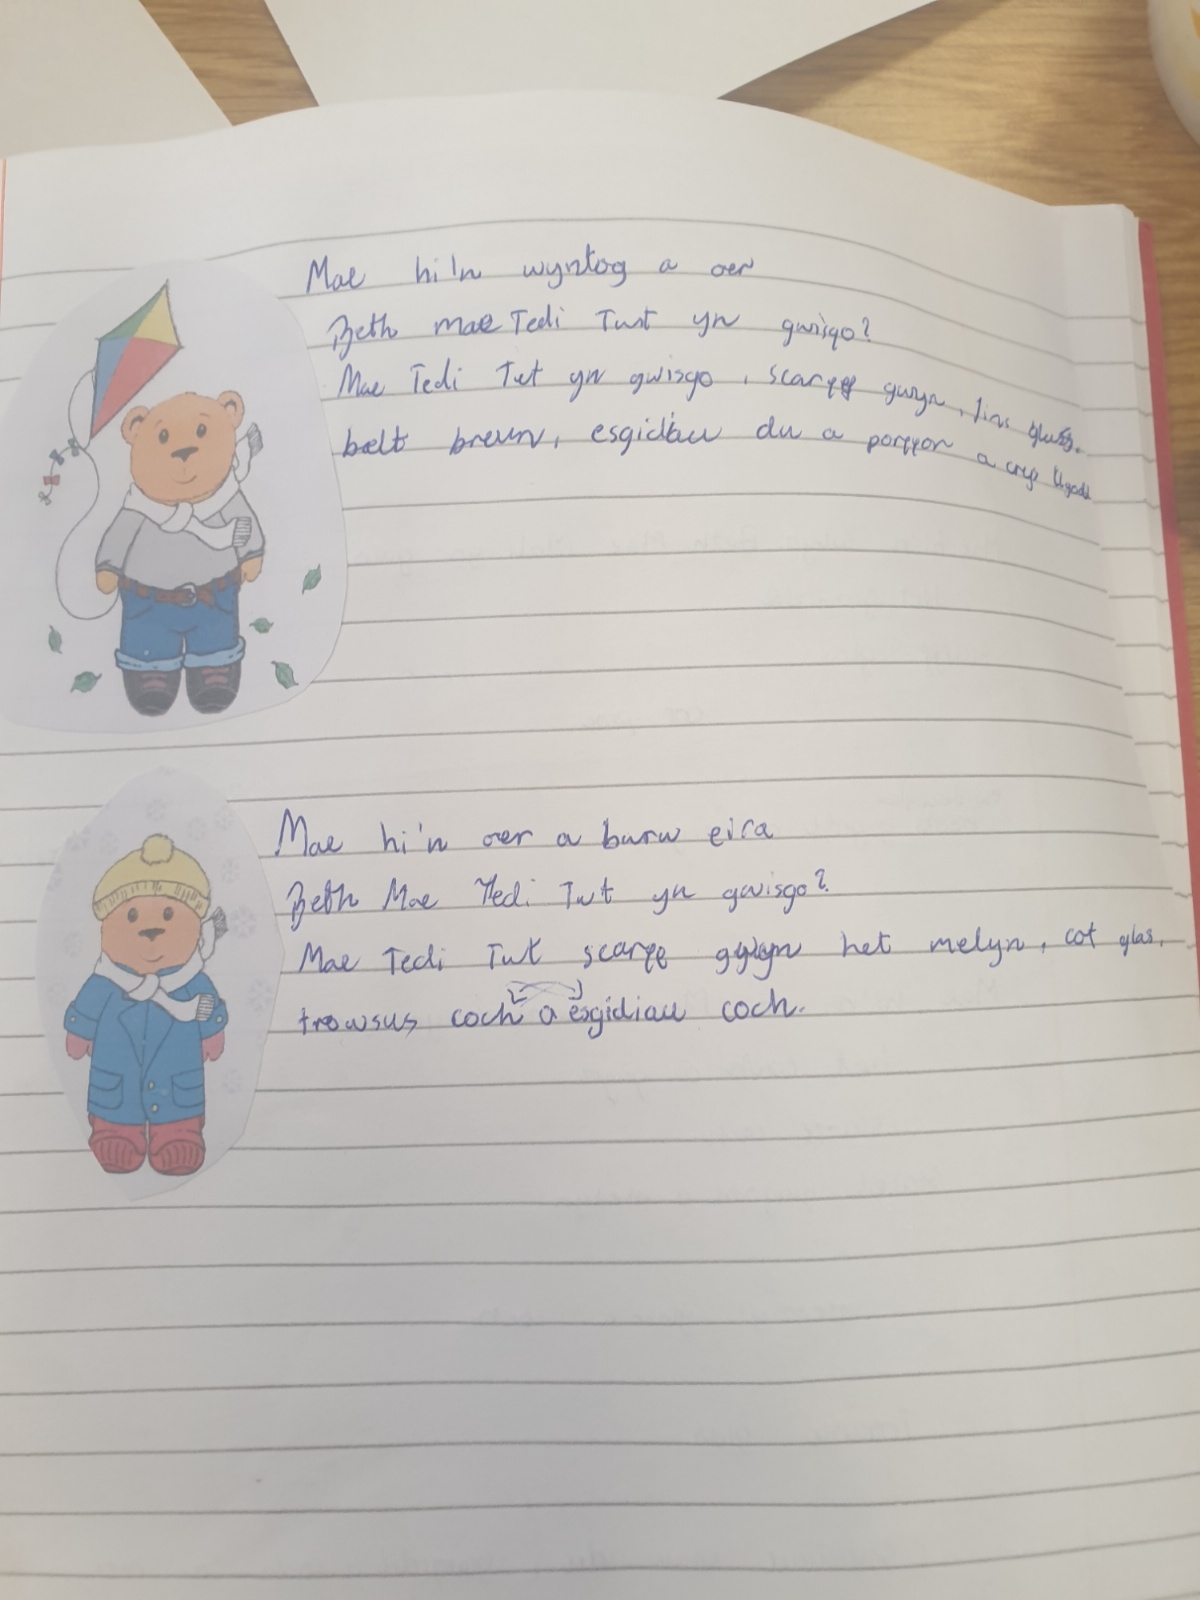 Mae hi'n wyntog a oer
Beth mae Tedi Twt yn gwisgo?
Mae Tedi Twt yn gwisgo , scarff gwyn, jins glas,
belt breun, esgidiau du a porffor a crys llgod
Mae hi'n oer a burw eira
Beth Mae Tedi Twt yn gwisgo?
Mae Tedi Twt scarff gwyn het melyn, cot glas,
trowsus coch a esgidiau coch.